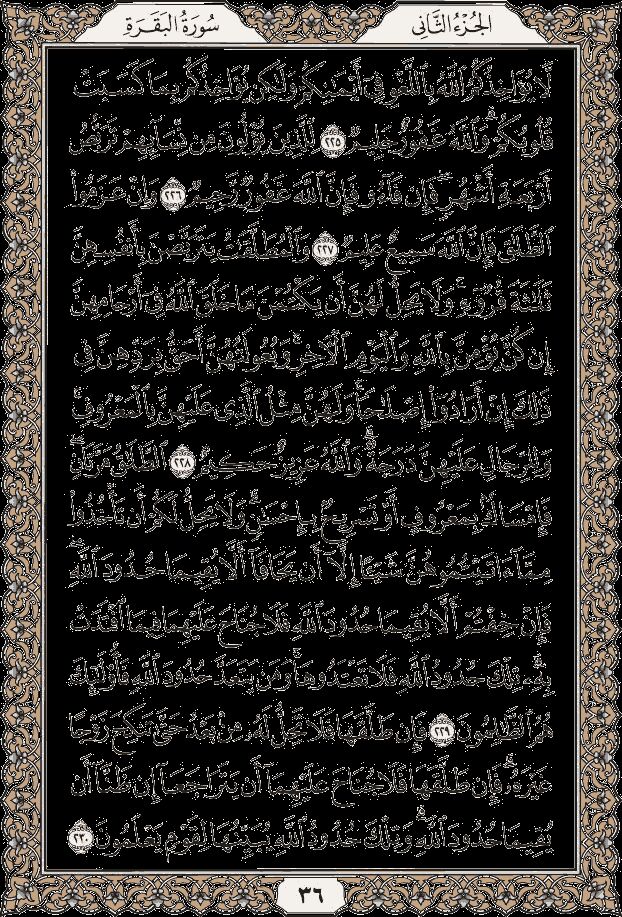 سُورَةُ البَقَرَةِ
الجُزْءُ الثَّانِي
لَّا يُؤَاخِذُكُمُ ٱللَّهُ بِٱللَّغْوِ فِىٓ أَيْمَٰنِكُمْ وَلَٰكِن يُؤَاخِذُكُم بِمَا كَسَبَتْ
قُلُوبُكُمْ ۗ وَٱللَّهُ غَفُورٌ حَلِيمٌ ٢٢٥ لِّلَّذِينَ يُؤْلُونَ مِن نِّسَآئِهِمْ تَرَبُّصُ
أَرْبَعَةِ أَشْهُرٍ ۖ فَإِن فَآءُو فَإِنَّ ٱللَّهَ غَفُورٌ رَّحِيمٌ ٢٢٦ وَإِنْ عَزَمُوا۟
ٱلطَّلَٰقَ فَإِنَّ ٱللَّهَ سَمِيعٌ عَلِيمٌ ٢٢٧ وَٱلْمُطَلَّقَٰتُ يَتَرَبَّصْنَ بِأَنفُسِهِنَّ
ثَلَٰثَةَ قُرُوٓءٍ ۚ وَلَا يَحِلُّ لَهُنَّ أَن يَكْتُمْنَ مَا خَلَقَ ٱللَّهُ فِىٓ أَرْحَامِهِنَّ
إِن كُنَّ يُؤْمِنَّ بِٱللَّهِ وَٱلْيَوْمِ ٱلْءَاخِرِ ۚ وَبُعُولَتُهُنَّ أَحَقُّ بِرَدِّهِنَّ فِى
ذَٰلِكَ إِنْ أَرَادُوٓا۟ إِصْلَٰحًا ۚ وَلَهُنَّ مِثْلُ ٱلَّذِى عَلَيْهِنَّ بِٱلْمَعْرُوفِ ۚ
وَلِلرِّجَالِ عَلَيْهِنَّ دَرَجَةٌ ۗ وَٱللَّهُ عَزِيزٌ حَكِيمٌ ٢٢٨ ٱلطَّلَٰقُ مَرَّتَانِ ۖ
فَإِمْسَاكٌۢ بِمَعْرُوفٍ أَوْ تَسْرِيحٌۢ بِإِحْسَٰنٍ ۗ وَلَا يَحِلُّ لَكُمْ أَن تَأْخُذُوا۟
مِمَّآ ءَاتَيْتُمُوهُنَّ شَيْـًٔا إِلَّآ أَن يَخَافَآ أَلَّا يُقِيمَا حُدُودَ ٱللَّهِ ۖ
فَإِنْ خِفْتُمْ أَلَّا يُقِيمَا حُدُودَ ٱللَّهِ فَلَا جُنَاحَ عَلَيْهِمَا فِيمَا ٱفْتَدَتْ
بِهِۦ ۗ تِلْكَ حُدُودُ ٱللَّهِ فَلَا تَعْتَدُوهَا ۚ وَمَن يَتَعَدَّ حُدُودَ ٱللَّهِ فَأُو۟لَٰٓئِكَ
هُمُ ٱلظَّٰلِمُونَ ٢٢٩ فَإِن طَلَّقَهَا فَلَا تَحِلُّ لَهُۥ مِنۢ بَعْدُ حَتَّىٰ تَنكِحَ زَوْجًا
غَيْرَهُۥ ۗ فَإِن طَلَّقَهَا فَلَا جُنَاحَ عَلَيْهِمَآ أَن يَتَرَاجَعَآ إِن ظَنَّآ أَن
يُقِيمَا حُدُودَ ٱللَّهِ ۗ وَتِلْكَ حُدُودُ ٱللَّهِ يُبَيِّنُهَا لِقَوْمٍ يَعْلَمُونَ ٢٣٠
٣٦